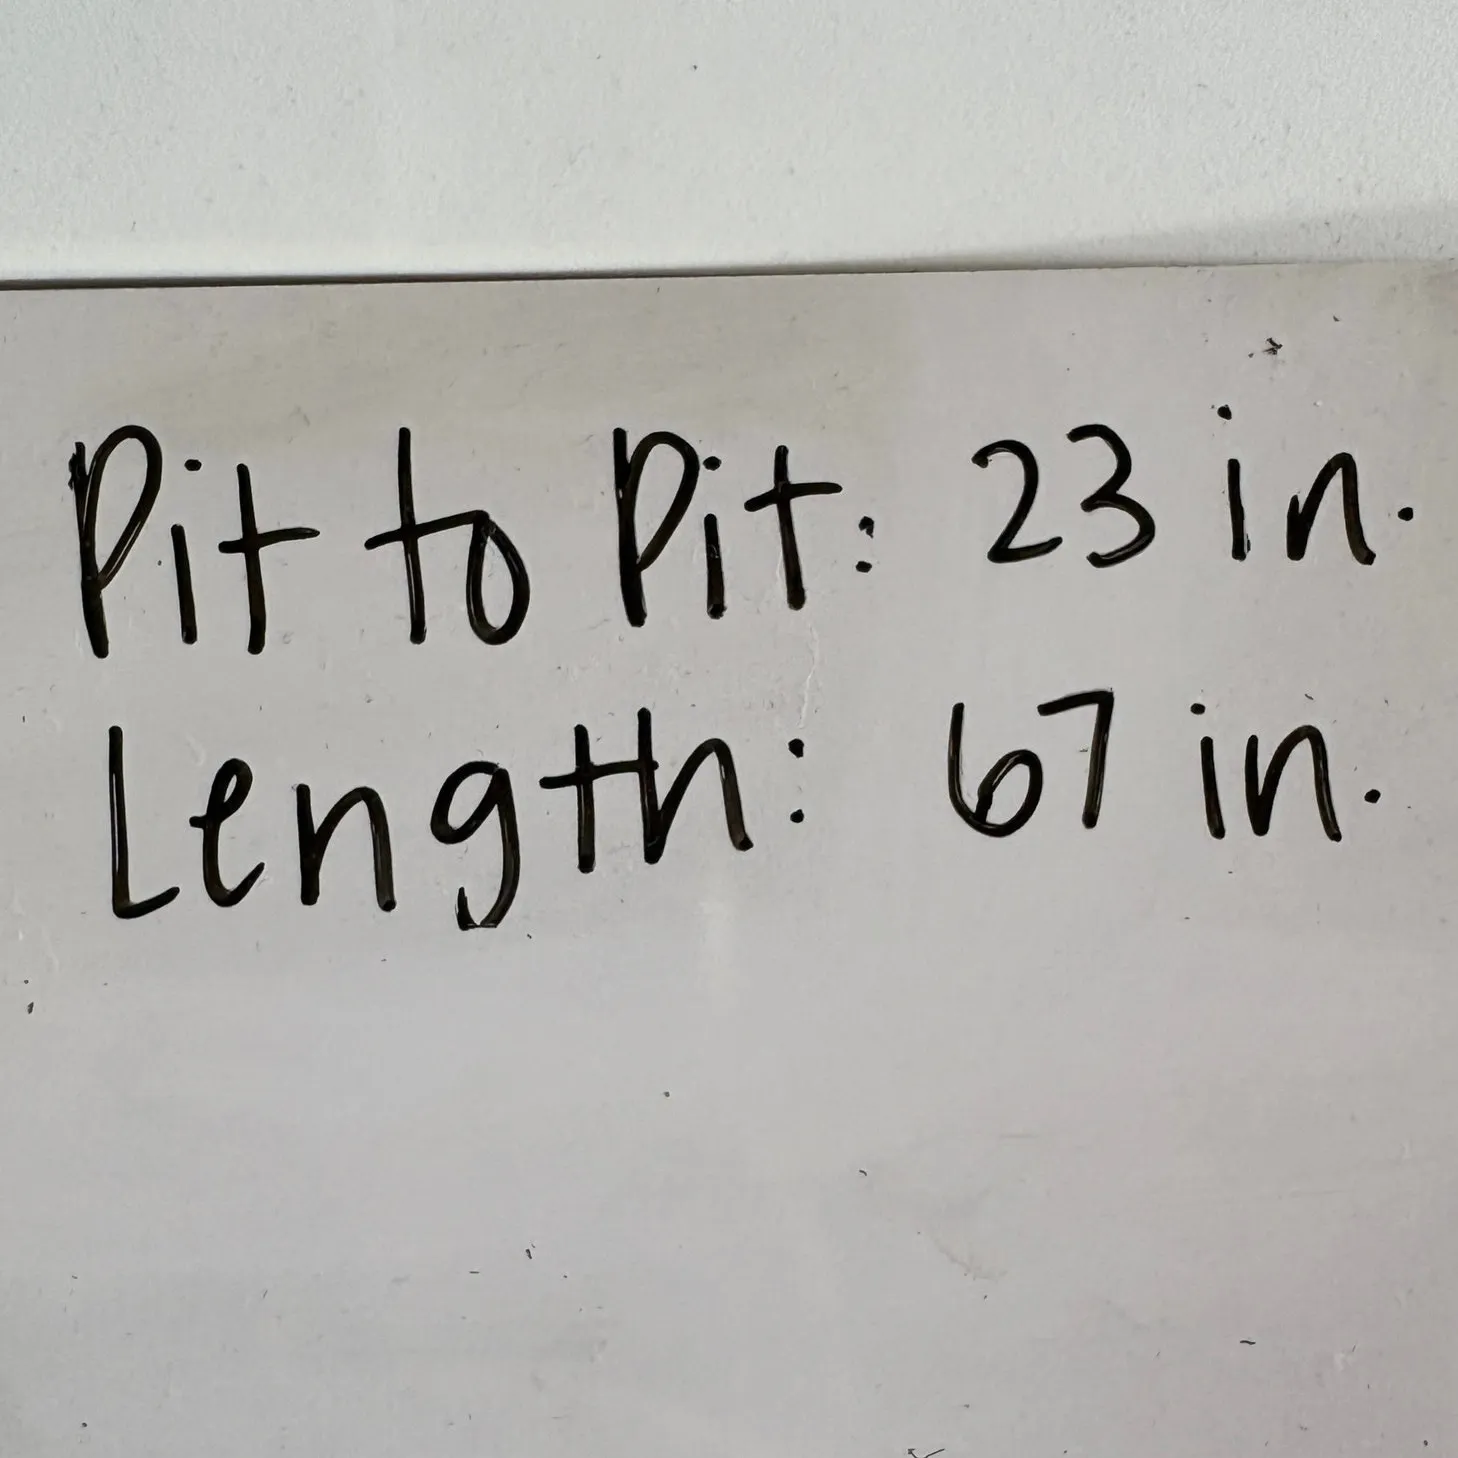 Pit to Pit: 23 in.
Length: 67 in.